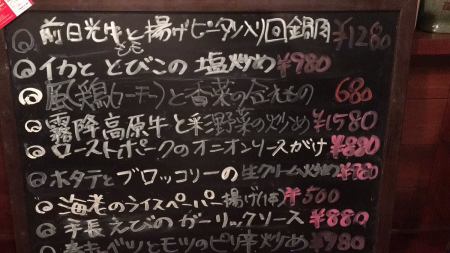 前日光牛もも と揚げピータン入り回鍋肉 ¥1280
イカととびこの塩炒め ¥980
(鶏 )と香菜の合えもの 680
霧降高原牛と彩野菜の炒め ¥1580
ローストポークのオニオンソースがけ ¥880
ホタテとブロッコリーの生クリーム炒め ¥980
海老のライスペーパー揚げ(1本) ¥500
手長えびのガーリックソース ¥880
キャベツとモツのピリ辛炒め ¥980